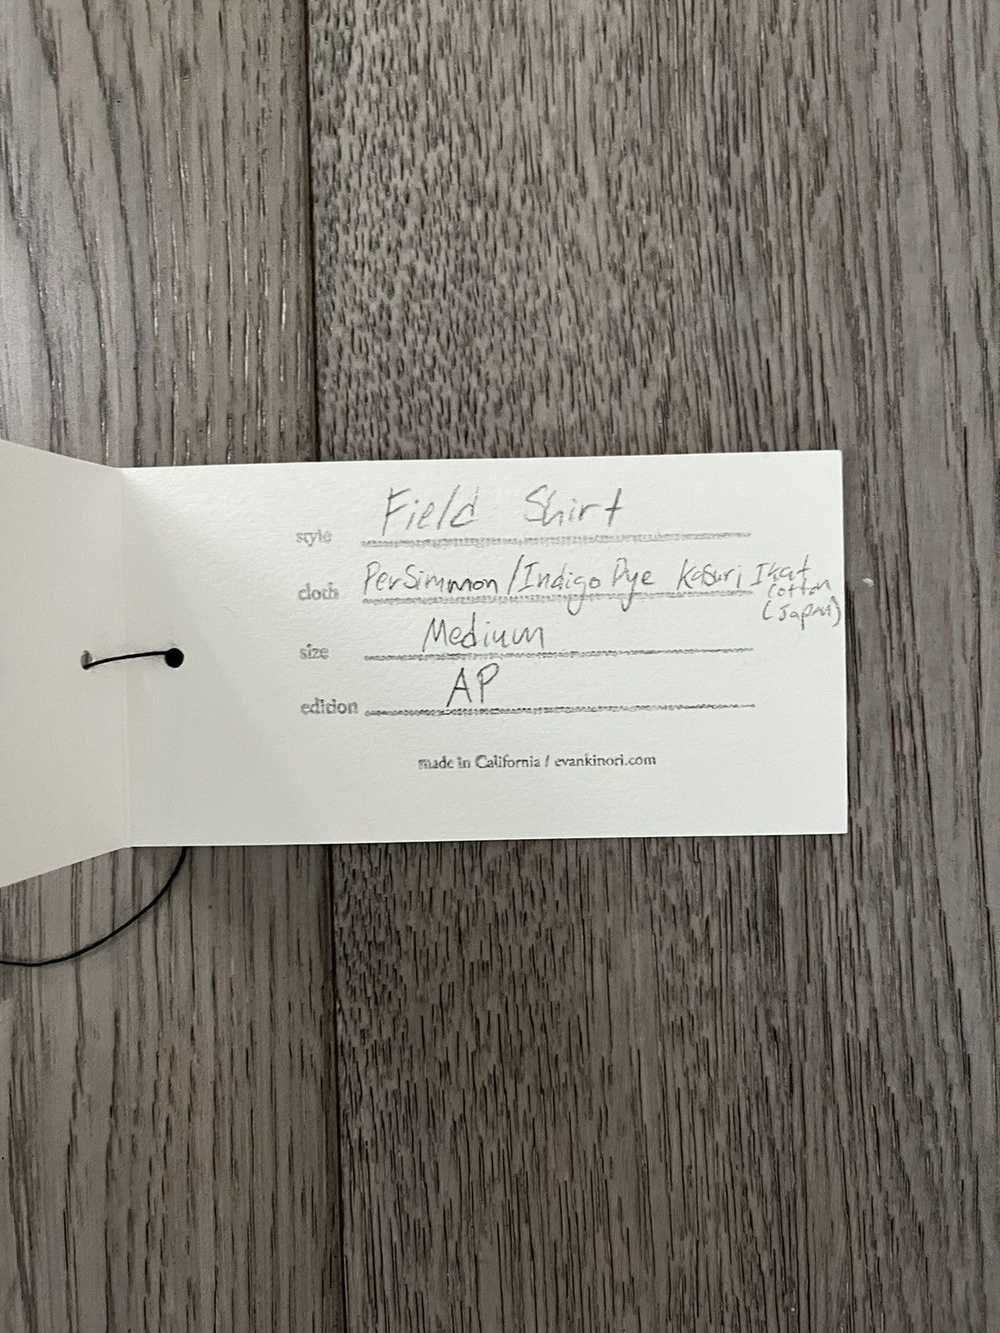 style Field Shirt
cloth Persimmon/Indigo Dye Kasuri Ikat
Cotton
(Japan)
size Medium
edition AP
made in California / evankinori.com